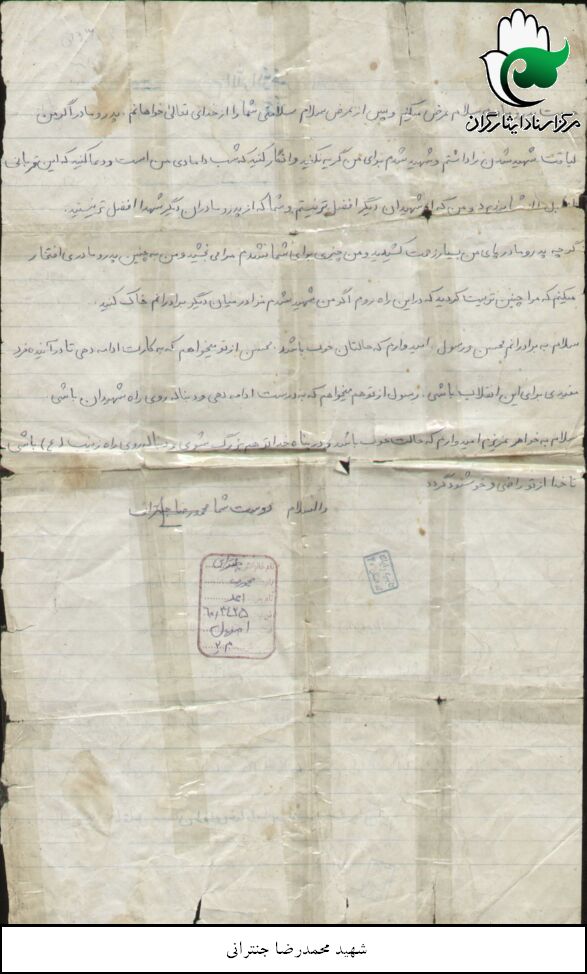 مرکز اسناد ایثارگران
سلام عرض میکنم و پس از عرض سلام سلامتی شما را از خدای تعالی خواهانم. پدر و مادر اگر من
لیاقت شهید شدن را داشتم و شهید شدم برای من گریه نکنید و انگار کنید که شب دامادی من است و دعا کنید که این قربانی
و من که از شهیدان دیگر افضل تر نیستم و شما که از پدر و مادران دیگر شهدا افضل تر نیستید.
گر چه پدر و مادر پای من بسیار زحمت کشیدید و من چیزی برای شما نشدم مرا می بخشید و من به چنین پدر و مادری افتخار
میکنم که مرا چنین تربیت کردید که در این راه روم اگر من شهید شدم مرا در میان دیگر برادرانم خاک کنید.
سلام به برادرانم محسن و رسول. امیدوارم که حالتان خوب باشد. محسن از تو میخواهم که به کارت ادامه دهی تا در آینده فرد
مفیدی برای این انقلاب باشی. رسول از تو هم میخواهم که به درست ادامه دهی و دنباله روی راه شهیدان باشی.
سلام به خواهر عزیزم امیدوارم که حالت خوب باشد و در پناه خدا تو هم بزرگ شوی و دنباله روی راه زینب (ع) باشی
تا خدا از تو راضی و خوشنود گردد
والسلام دوست شما محمدرضا جنترانی
شهید محمدرضا جنترانی